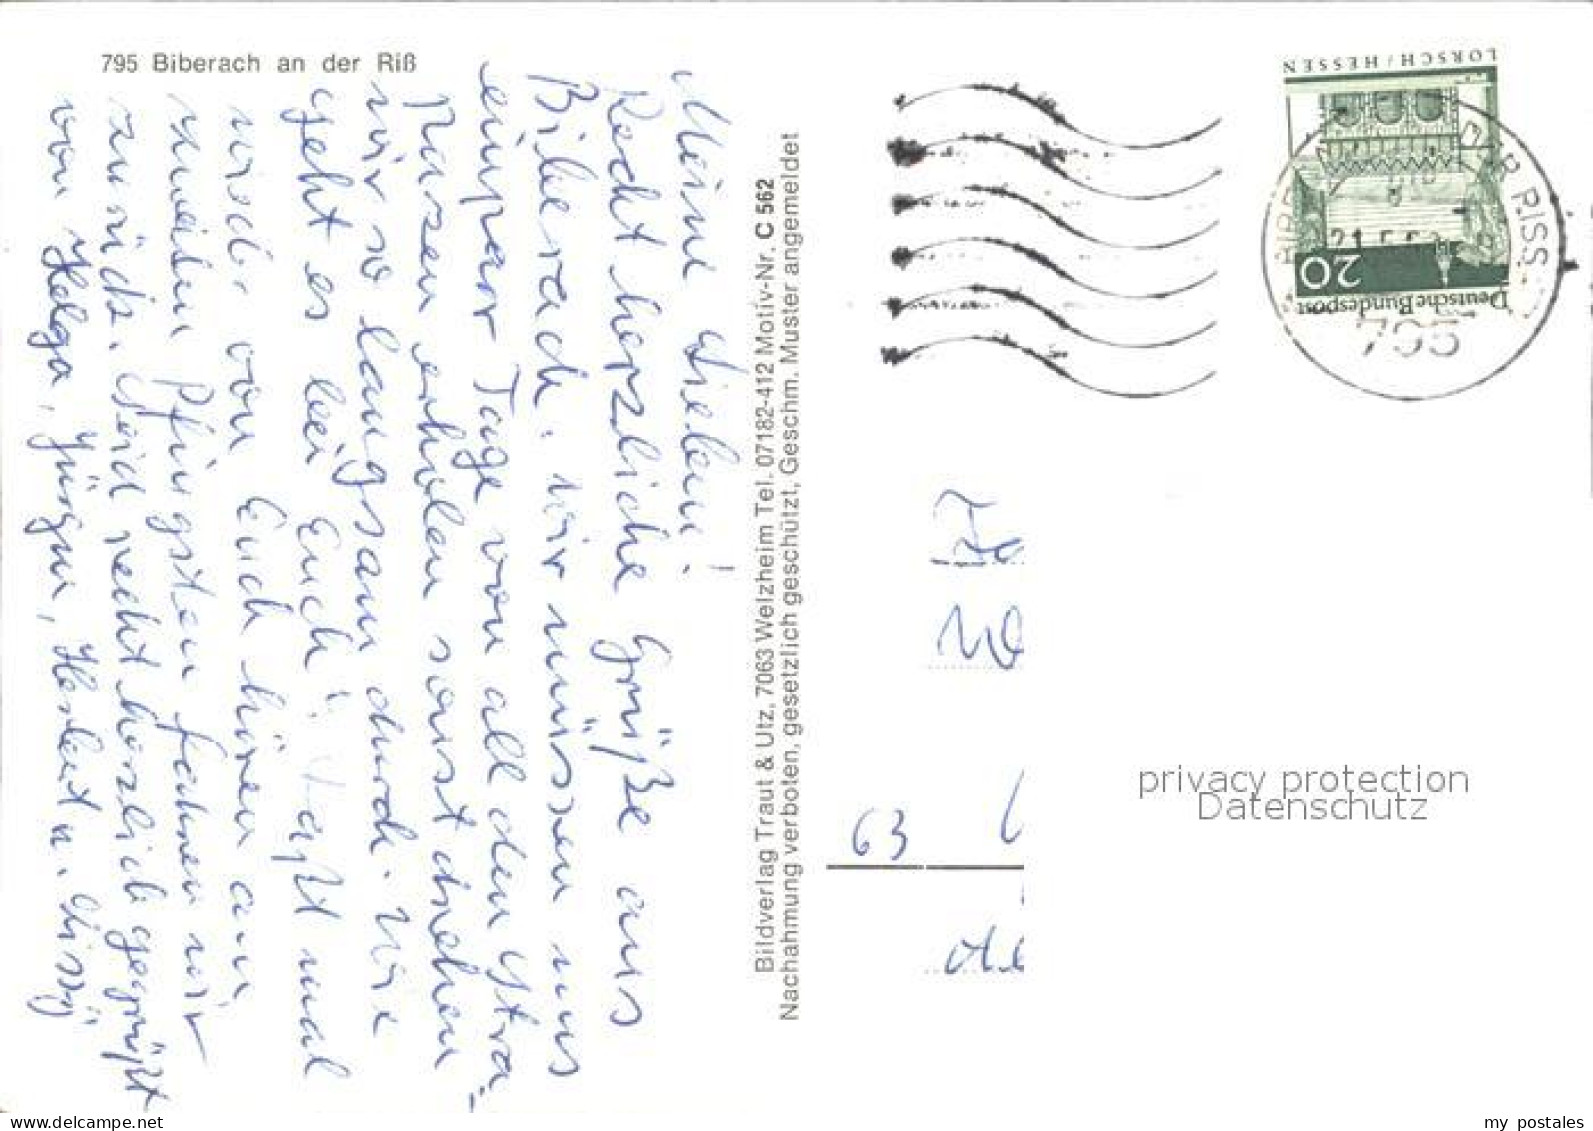 795 Biberach an der Riß
Meine Lieben!
Recht herzliche Grüße aus
Biberach. Wir müssen uns
ein paar Tage von all den Stra-
pazen erholen sonst drehen
wir so langsam durch. Wie
geht es bei Euch? Laßt mal
wieder von Euch hören am
zweiten Pfingsten fahren wir
zurück. Seid recht herzlich gegrüßt
von Helga, Jürgen, Herbert u. Sissy
Bildverlag Traut & Utz, 7063 Welzheim Tel. 07182-412 Motiv-Nr. C 562
Nachahmung verboten, gesetzlich geschützt, Geschm. Muster angemeldet
LORSCH / HESSEN
20
Deutsche Bundespost
DER RISS
795
63
privacy protection
Datenschutz
www.delcampe.net
my postales